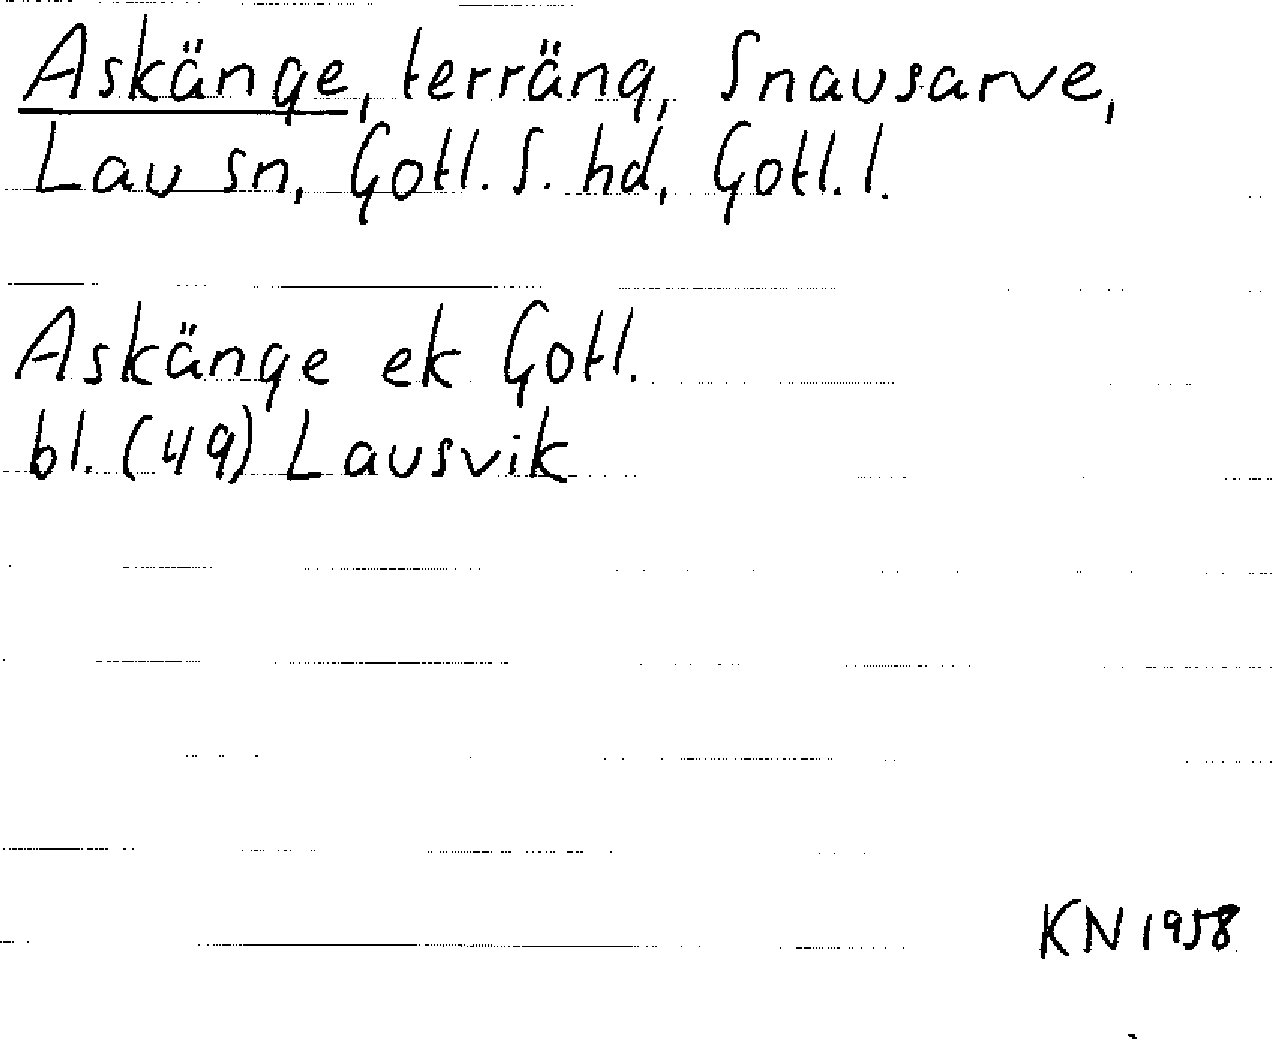 Askänge, terräng, Snausarve,
Lau sn, Gotl. S. hd, Gotl. l.
Askänge ek Gotl.
bl. (49) Lausvik
KN 1958